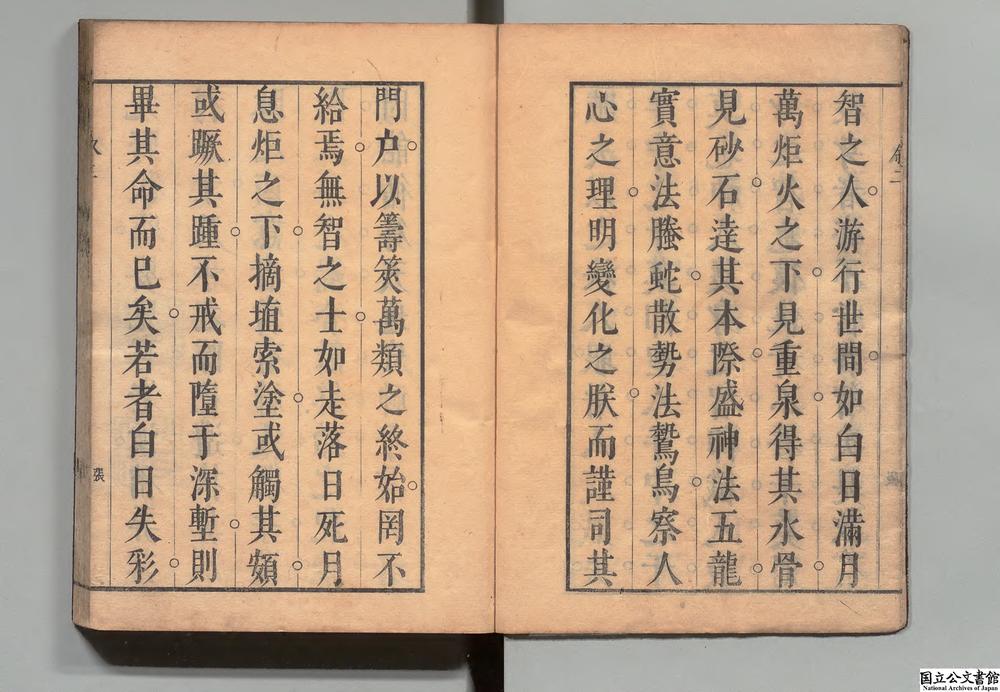 智之人游行世間如白日滿月
萬炬火之下見重泉得其水骨
見砂石達其本際盛神法五龍
實意法螣蛇散勢法鷙鳥察人
心之理明變化之朕而謹司其
門户以籌筴萬類之終始罔不
給焉無智之士如走落日死月
息炬之下摘埴索塗或觸其頰
或蹶其踵不戒而墮于深塹則
畢其命而已矣若者白日失彩
張
国立公文書館
National Archives of Japan